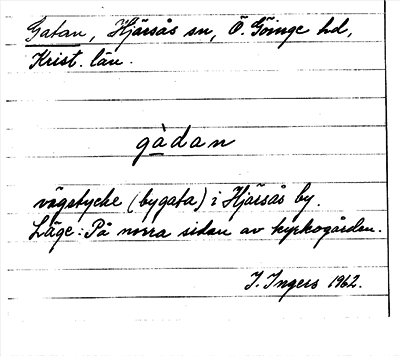 Gatan, Hjärsås sn, Ö. Göinge hd,
Krist. län.
gàdan
vägstycke (bygata) i Hjärsås by.
Läge: På norra sidan av kyrkogården.
I. Ingers 1962.